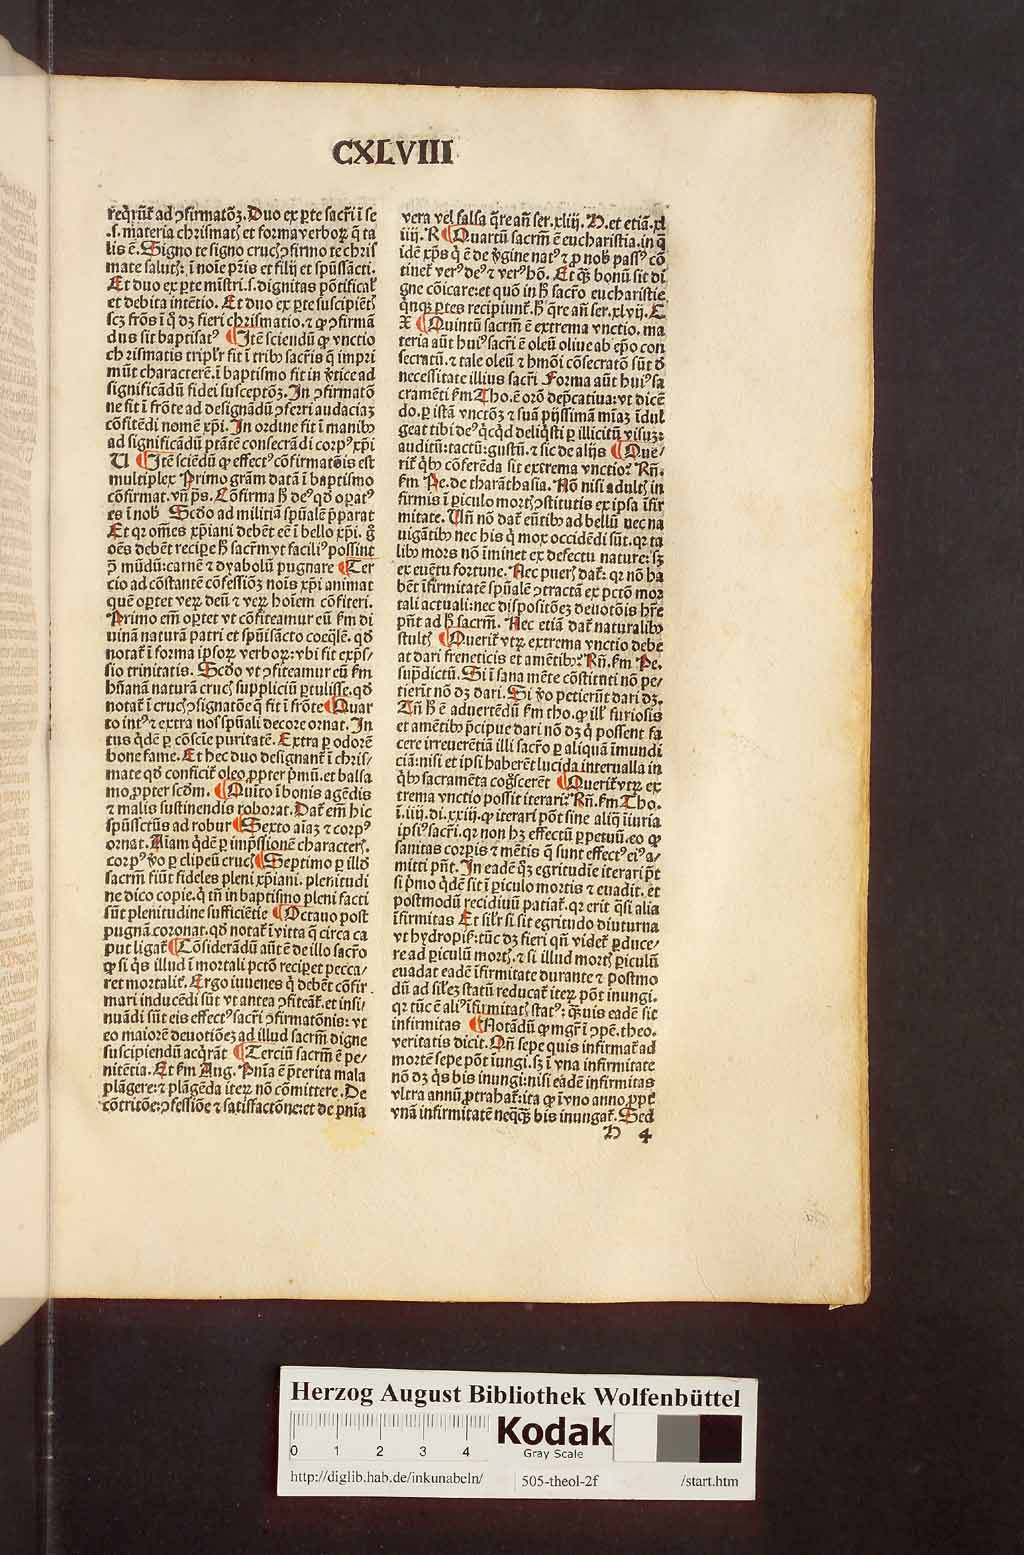 CXLVIII
reqͥrũt᷑ ad ↄfirmatõꝫ. Duo ex ꝑte sacr̃i ĩ se
.s. materia chrismatꝭ et forma verboꝝ q̃ ta
lis ẽ. Signo te signo crucꝭ ↄfirmo te chris
mate salutꝭ: ĩ noĩe pr̃is et filij et sp̃ussãcti.
Et duo ex ꝑte mĩstri .s. dignitas põtifical᷑
et debita intẽtio. Et duo ex ꝑte suscipiẽtꝭ
scꝫ frõs ĩ q̃ dꝫ fieri chrismatio. ⁊ ꝙ ↄfirmã
dus sit baptisatꝰ ¶ Itẽ sciendũ ꝙ vnctio
chrismatis tripl᷑r fit ĩ tribꝰ sacr̃is q̃ impri
mũt characterẽ. ĩ baptismo fit in v̾tice ad
significãdũ fidei susceptõꝫ. In ↄfirmatõ
ne fit ĩ frõte ad designãdũ ↄferri audaciaꝫ
cõfitẽdi nomẽ xp̃i. In ordine fit ĩ manibꝰ
ad significãdũ ptãtẽ consecrãdi corpꝰ xp̃i
U ¶ Itẽ sciendũ ꝙ effectꝰ cõfirmatõis est
multiplex Primo grãm datã ĩ baptismo
cõfirmat. vñ ps̃. Cõfirma h̾ deꝰ qđ oꝑatꝰ
es ĩ nob̾ Scđo ad militiã sp̃ualẽ p̃parat
Et qꝛ om̃es xp̃iani debẽt eẽ ĩ bello xp̃i. g̊
oẽs debẽt reciꝑe h̾ sacr̃m vt faciliꝰ possint
ↄ̃ mũdũ: carnẽ ⁊ dyabolũ pugnare ¶ Ter
cio ad cõstantẽ cõfessiõꝫ nois xp̃i animat
quẽ oꝑtet veꝝ deũ ⁊ veꝝ hoĩem cõfiteri.
Primo em̃ oꝑtet vt cõfiteamur eũ ẜm di
uinã naturã patri et sp̃uisãcto coeq̃lẽ. qđ
notat᷑ ĩ forma ipsoꝝ verboꝝ: vbi fit exp̃s/
sio trinitatis. Scđo vt ↄfiteamur eũ ẜm
hũanã naturã crucꝭ suppliciũ ꝑtulisse. qđ
notat᷑ ĩ crucꝭ ↄsignatõe q̃ fit ĩ frõte ¶ Quar
to intꝰ ⁊ extra nos sp̃uali decore ornat. In
tus qͥdẽ ꝑ cõscie puritatẽ. Extra ꝑ odorẽ
bone fame. Et hec duo designant᷑ ĩ chris/
mate qđ conficit᷑ oleo ꝓpter p̃mũ. et balsa
mo ꝓpter scđm. ¶ Quĩto ĩ bonis agẽdis
⁊ malis sustinendis roborat. Dat᷑ em̃ hic
sp̃ussctũs ad robur ¶ Sexto aĩaꝫ ⁊ corpꝰ
ornat. Aiam qͥdẽ ꝑ imp̃ssionẽ characterꝭ.
corpꝰ v̊o ꝑ clipeũ crucꝭ ¶ Septimo ꝑ illđ
sacrm̃ fiũt fideles pleni xp̃iani. plenitudi
ne dico copie. q̃ tñ in baptismo pleni facti
sũt plenitudine sufficiẽtie ¶ Octauo post
pugnã coronat. qđ notat᷑ ĩ vitta q̃ circa ca
put ligat᷑ ¶ Cõsiderãdũ aũt ẽ de illo sacr̃o
ꝙ si qͥs illud ĩ mortali pctõ reciꝑet pecca/
ret mortalit᷑. Ergo iuuenes qͥ debẽt cõfir
mari inducẽdi sũt vt antea ↄfiteãt᷑. et insi/
nuãdi sũt eis effectꝰ sacr̃i ↄfirmatõnis: vt
eo maiorẽ deuotiõeꝫ ad illud sacrm̃ digne
suscipiendũ acqͥrãt ¶ Terciũ sacrm̃ ẽ pe/
nitẽtia. Et ẜm Aug. Pn̄ia ẽ p̃terita mala
plãgere: ⁊ plãgẽda iteꝝ nõ cõmittere. De
cõtritõe: ↄfessiõe ⁊ satisfactõne: et de pn̄ia
vera vel falsa q̃re añ ser. xliij. D. et etiã. xl
iiij. R ¶ Quartũ sacrm̃ ẽ eucharistia. in q̃
idẽ xp̃s qͥ ẽ de v̾gine natꝰ ⁊ ꝓ nob̾ passꝰ cõ
tinet᷑ verꝰ deꝰ ⁊ verꝰ hõ. Et qꝫ bonũ sit di
gne cõicare: et quõ in h̾ sacr̃o eucharistie
qͥnqꝫ ꝑtes recipiunt᷑. h̾ q̃re añ ser. xlvij. C
X ¶ Quintũ sacrm̃ ẽ extrema vnctio. ma
teria aũt huiꝰ sacr̃i ẽ oleũ oliue ab ep̃o con
secratũ. ⁊ tale oleũ ⁊ hmõi cõsecratõ sũt đ
necessitate illius sacr̃i Forma aũt huiꝰ sa
cramẽti ẜm Tho. ẽ orõ dep̃catiua: vt dicẽ
do. ꝑ istã vnctõꝫ ⁊ suã pijssimã mĩaꝫ ĩdul
geat tibi deꝰ qͥcqͥd deliqͥsti ꝑ illicitũ visuꝫ:
auditũ: tactũ: gustũ. ⁊ sic de alijs ¶ Que/
rit᷑ qͥbꝰ cõferẽda sit extrema vnctio? Rñ.
ẜm Pe. de tharãthasia. Nõ nisi adultꝭ in
firmis ĩ ꝑiculo mortꝭ ↄstitutis ex ipsa ĩfir
mitate. Uñ nõ dat᷑ eũtibꝰ ad bellũ nec na
uigãtibꝰ nec his qͥ mox occidẽdi sũt. qꝛ ta
libꝰ mors nõ ĩminet ex defectu nature: sꝫ
ex euẽtu fortune. Nec puerꝭ dat᷑: qꝛ nõ ha
bẽt ĩfirmitatẽ sp̃ualẽ ↄtractã ex pctõ mor
tali actuali: nec dispositõeꝫ deuotõis hr̃e
pñt ad h̾ sacrm̃. Nec etiã dat᷑ naturalibꝰ
stultꝭ ¶ Querit᷑ vtꝝ extrema vnctio debe
at dari freneticis et amẽtibꝰ? Rñ. ẜm Pe.
sup̃dictũ. Si ĩ sana mẽte cõstituti nõ pe/
tierũt nõ dꝫ dari. Si v̊o petierũt dari dꝫ.
Tñ h̾ ẽ aduertẽdũ ẜm tho. ꝙ ill᷑ furiosis
et amẽtibꝰ p̃cipue dari nõ dꝫ qͥ possent fa
cere irreuerẽtiã illi sacr̃o ꝑ aliquã ĩmundi
ciã: nisi et ipsi haberẽt lucida interualla in
qͥbꝰ sacramẽta cog̊scerẽt ¶ Querit᷑ vtꝝ ex
trema vnctio possit iterari? Rñ. ẜm Tho.
ĩ. iiij. di. xxiij. ꝙ iterari põt sine aliq̃ ĩiuria
ipsiꝰ sacr̃i. qꝛ non hꝫ effectũ ꝑpetuũ. eo ꝙ
sanitas corꝑis ⁊ mẽtis q̃ sunt effectꝰ eiꝰ a/
mitti pñt. In eadẽ qͥꝫ egritudĩe iterari p̃t
si p̃mo qͥdẽ sit ĩ ꝑiculo mortis ⁊ euadit. et
postmodũ recidiuũ patiat᷑. qꝛ erit q̃si alia
ĩfirmitas Et sil᷑r si sit egritudo diuturna
vt hydropis᷑: tũc dꝫ fieri qñ videt᷑ ꝑduce/
re ad ꝑiculũ mortꝭ. ⁊ si illud mortꝭ ꝑiculũ
euadat eadẽ ĩfirmitate durante ⁊ postmo
dũ ad sil᷑eꝫ statũ reducat᷑ iteꝝ põt inungi.
qꝛ tũc ẽ aliꝰ ĩfirmitatꝭ statꝰ: q̃uis eadẽ sit
infirmitas ¶ Notãdũ ꝙ mgr̃ ĩ ↄpẽ. theo.
veritatis dicit. Qñ sepe quis infirmat᷑ ad
mortẽ sepe põt ĩungi. sꝫ ĩ vna infirmitate
nõ dꝫ qͥs bis inungi: nisi eadẽ infirmitas
vltra annũ ꝓtrahat᷑: ita ꝙ ĩ vno anno ꝓpt᷑
vnã infirmitatẽ neqꝫ bis inungat᷑. Sed
D 4
Herzog August Bibliothek Wolfenbüttel
0 1 2 3 4
Kodak
Gray Scale
http://diglib.hab.de/inkunabeln/ 505-theol-2f /start.htm